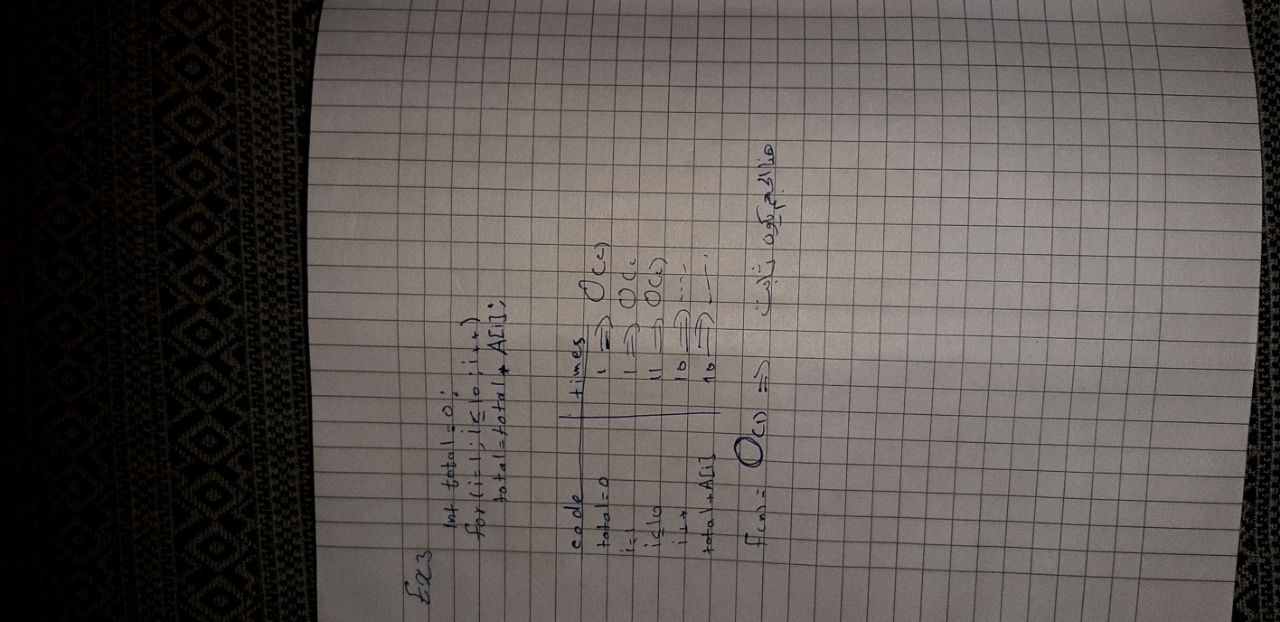 Ex3
int total = 0;
for (i=1; i≤10; i++)
total = total + A[i];
code | times
total = 0 | 1 ⇒ O(c)
i=1 | 1 ⇒ O(c
i≤10 | 11 ⇒ O(c)
i++ | 10 ⇒ ....
total + A[i] | 10 ⇒ ....
F(n) = O(1) ⇒ ثابت